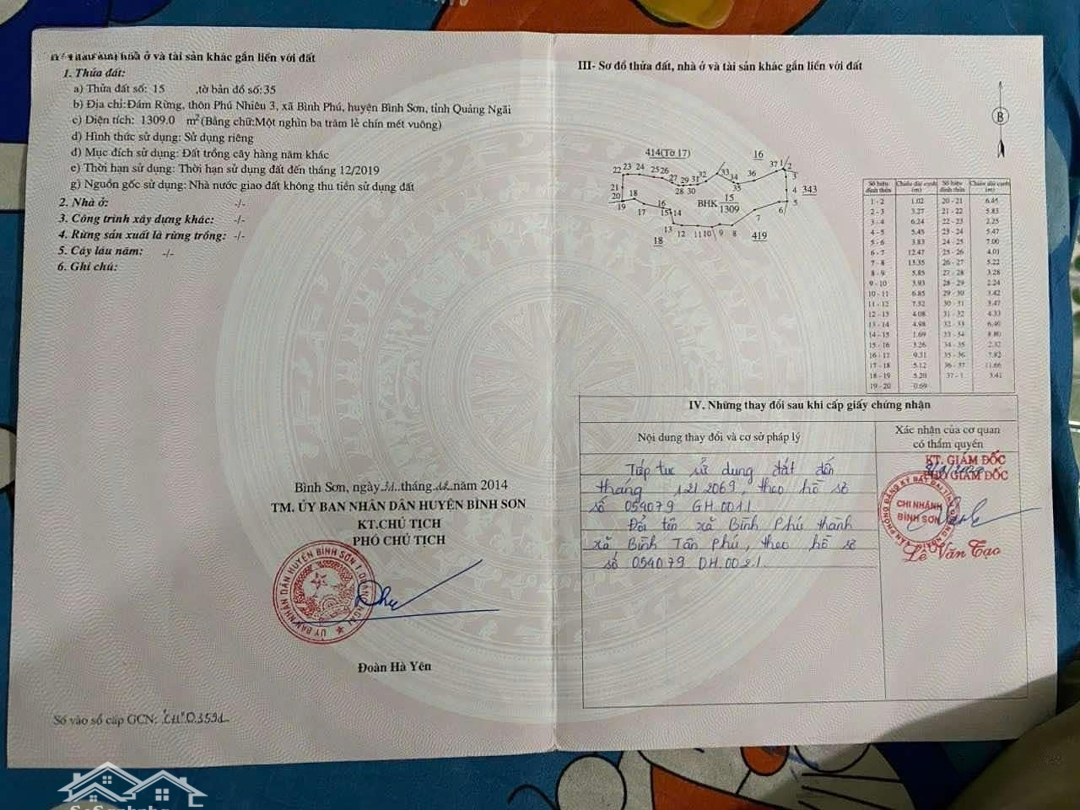 nhà ở và tài sản khác gắn liền với đất
1. Thửa đất:
a) Thửa đất số: 15 ,tờ bản đồ số:35
b) Địa chỉ:Đám Rừng, thôn Phú Nhiêu 3, xã Bình Phú, huyện Bình Sơn, tỉnh Quảng Ngãi
c) Diện tích: 1309.0 m²(Bằng chữ:Một nghìn ba trăm lẻ chín mét vuông)
d) Hình thức sử dụng: Sử dụng riêng
đ) Mục đích sử dụng: Đất trồng cây hàng năm khác
e) Thời hạn sử dụng: Thời hạn sử dụng đất đến tháng 12/2019
g) Nguồn gốc sử dụng: Nhà nước giao đất không thu tiền sử dụng đất
2. Nhà ở: -/-
3. Công trình xây dựng khác: -/-
4. Rừng sản xuất là rừng trồng: -/-
5. Cây lâu năm: -/-
6. Ghi chú:
Bình Sơn, ngày tháng 12 năm 2014
TM. ỦY BAN NHÂN DÂN HUYỆN BÌNH SƠN
KT.CHỦ TỊCH
PHÓ CHỦ TỊCH
Đoàn Hà Yên
Số vào sổ cấp GCN:
III- Sơ đồ thửa đất, nhà ở và tài sản khác gắn liền với đất
B
414(Tờ 17)
16
343
BHK 15
1309
18
419
Số hiệu đỉnh thửa Chiều dài cạnh (m) Số hiệu đỉnh thửa Chiều dài cạnh (m)
1 - 2 1.02 20 - 21 6.45
2 - 3 3.27 21 - 22 5.83
3 - 4 6.24 22 - 23 2.25
4 - 5 5.45 23 - 24 5.47
5 - 6 3.83 24 - 25 7.00
6 - 7 12.47 25 - 26 4.01
7 - 8 13.35 26 - 27 5.22
8 - 9 5.85 27 - 28 3.28
9 - 10 3.93 28 - 29 2.24
10 - 11 6.85 29 - 30 3.42
11 - 12 7.52 30 - 31 3.47
12 - 13 4.08 31 - 32 4.33
13 - 14 4.98 32 - 33 6.40
14 - 15 1.69 33 - 34 8.80
15 - 16 3.26 34 - 35 2.32
16 - 17 9.31 35 - 36 7.82
17 - 18 5.12 36 - 37 11.66
18 - 19 5.20 37 - 1 3.41
19 - 20 0.69
IV. Những thay đổi sau khi cấp giấy chứng nhận
Nội dung thay đổi và cơ sở pháp lý
Xác nhận của cơ quan
có thẩm quyền
Tiếp tục sử dụng đất đến
tháng 12/2069, theo hồ sơ
số 054079 GH.0011
Đổi tên xã Bình Phú thành
xã Bình Tân Phú, theo hồ sơ
số 054079 DH.0021
KT. GIÁM ĐỐC
PHÓ GIÁM ĐỐC
CHI NHÁNH
BÌNH SƠN
Lê Văn Tạo